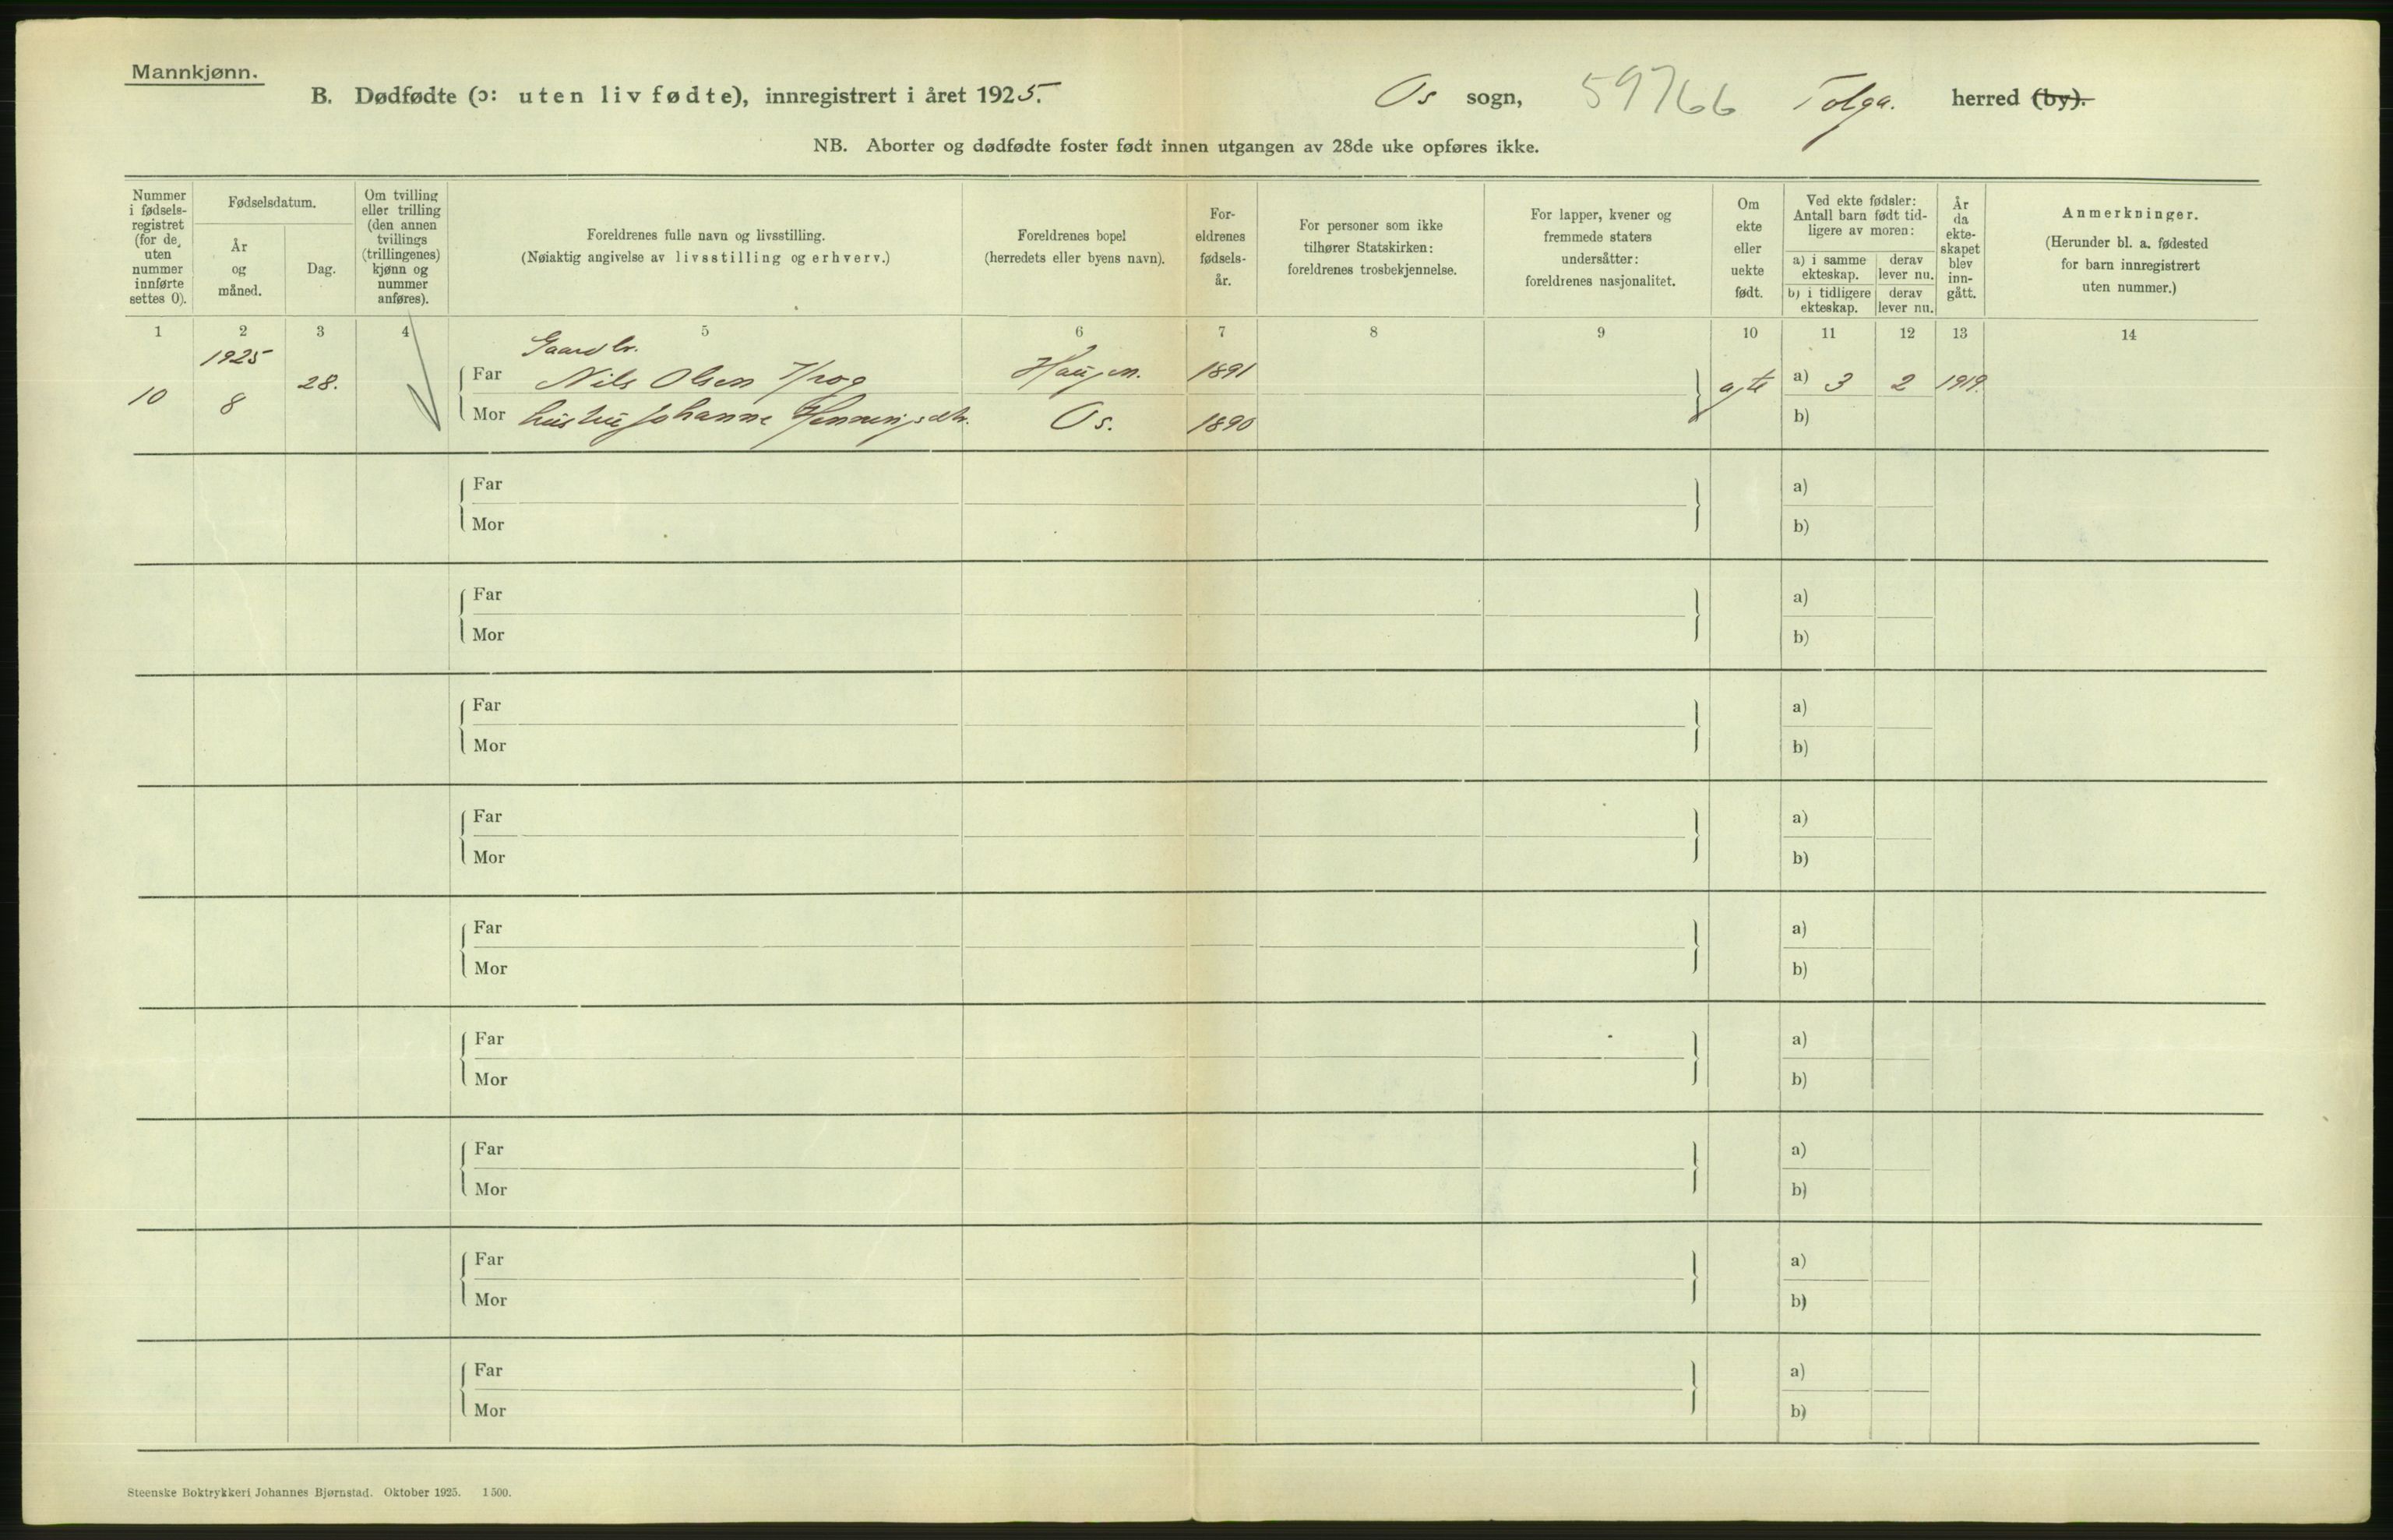 Mannkjønn.
B. Dødfødte (ɔ: uten liv fødte), innregistrert i året 1925.
Os sogn, 59766 Tolga. herred (by).
NB. Aborter og dødfødte foster født innen utgangen av 28de uke opføres ikke.
Nummer
i fødsels-
registret
(for de
uten
nummer
innførte
settes 0).
Fødselsdatum.
År
og
måned.
Dag.
Om tvilling
eller trilling
(den annen
tvillings
(trillingenes)
kjønn og
nummer
anføres).
Foreldrenes fulle navn og livsstilling.
(Nøiaktig angivelse av livsstilling og erhverv.)
Foreldrenes bopel
(herredets eller byens navn).
For-
eldrenes
fødsels-
år.
For personer som ikke
tilhører Statskirken:
foreldrenes trosbekjennelse.
For lapper, kvener og
fremmede staters
undersåtter:
foreldrenes nasjonalitet.
Om
ekte
eller
uekte
født.
Ved ekte fødsler:
Antall barn født tid-
ligere av moren:
a) i samme
ekteskap.
derav
lever nu.
b) i tidligere
ekteskap.
derav
lever nu.
År
da
ekte-
skapet
blev
inn-
gått.
Anmerkninger.
(Herunder bl. a. fødested
for barn innregistrert
uten nummer.)
1 2 3 4 5 6 7 8 9 10 11 12 13 14
Gaardbr.
1925
10 8 28. Far Nils Olsen Haugen. 1891 a) 3 2 1919.
Mor Johanne Henningsdtr. Os. 1890 b)
Far a)
Mor b)
Far a)
Mor b)
Far a)
Mor b)
Far a)
Mor b)
Far a)
Mor b)
Far a)
Mor b)
Far a)
Mor b)
Far a)
Mor b)
Far a)
Mor b)
Steenske Boktrykkeri Johannes Bjørnstad. Oktober 1925. 1500.